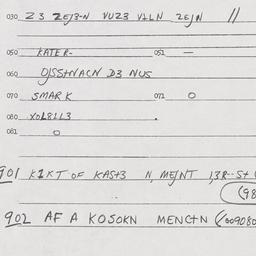 030 Z3 ZEJ3-N VUZ3 VLLN ZEJN //
050 KATER- 051 —
060 OJSStNACN D3 NUS
070 SMARK 071 O
080 XOL8113 .
081 O
901 KIKT OF KASt3 N, MEJNT 1,3R--St
(98
902 AF A KOSOKN MENCTN (009080